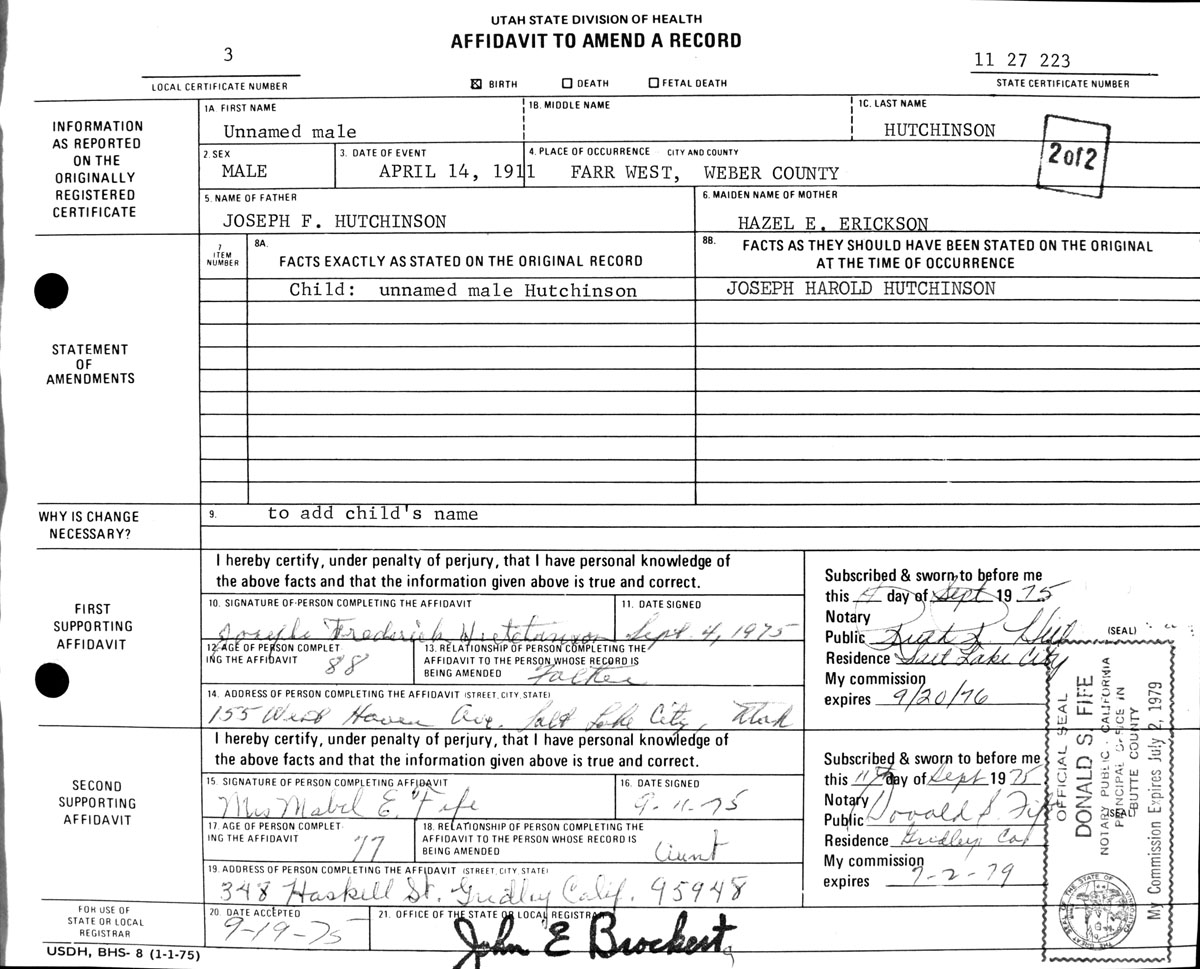 UTAH STATE DIVISION OF HEALTH
AFFIDAVIT TO AMEND A RECORD
3
LOCAL CERTIFICATE NUMBER
☒ BIRTH ☐ DEATH ☐ FETAL DEATH
11 27 223
STATE CERTIFICATE NUMBER
INFORMATION
AS REPORTED
ON THE
ORIGINALLY
REGISTERED
CERTIFICATE
1A. FIRST NAME
Unnamed male
1B. MIDDLE NAME
1C. LAST NAME
HUTCHINSON
2 of 2
2. SEX
MALE
3. DATE OF EVENT
APRIL 14, 1911
4. PLACE OF OCCURRENCE CITY AND COUNTY
FARR WEST, WEBER COUNTY
5. NAME OF FATHER
JOSEPH F. HUTCHINSON
6. MAIDEN NAME OF MOTHER
HAZEL E. ERICKSON
STATEMENT
OF
AMENDMENTS
7
ITEM
NUMBER
8A.
FACTS EXACTLY AS STATED ON THE ORIGINAL RECORD
8B. FACTS AS THEY SHOULD HAVE BEEN STATED ON THE ORIGINAL
AT THE TIME OF OCCURRENCE
Child: unnamed male Hutchinson
JOSEPH HAROLD HUTCHINSON
WHY IS CHANGE
NECESSARY?
9. to add child's name
FIRST
SUPPORTING
AFFIDAVIT
I hereby certify, under penalty of perjury, that I have personal knowledge of
the above facts and that the information given above is true and correct.
10. SIGNATURE OF PERSON COMPLETING THE AFFIDAVIT
Joseph Frederick Hutchinson
11. DATE SIGNED
Sept. 4, 1975
12 AGE OF PERSON COMPLET
ING THE AFFIDAVIT 88
13. RELATIONSHIP OF PERSON COMPLETING THE
AFFIDAVIT TO THE PERSON WHOSE RECORD IS
BEING AMENDED Father
14. ADDRESS OF PERSON COMPLETING THE AFFIDAVIT (STREET, CITY, STATE)
155 West Haven Ave. Salt Lake City, Utah
Subscribed & sworn to before me
this 4 day of Sept 19 75
Notary
Public
(SEAL)
Residence Salt Lake City
My commission
expires 9/20/76
SECOND
SUPPORTING
AFFIDAVIT
I hereby certify, under penalty of perjury, that I have personal knowledge of
the above facts and that the information given above is true and correct.
15. SIGNATURE OF PERSON COMPLETING AFFIDAVIT
Mrs Mabel E. Fife
16. DATE SIGNED
9-11-75
17. AGE OF PERSON COMPLET
ING THE AFFIDAVIT 77
18. RELATIONSHIP OF PERSON COMPLETING THE
AFFIDAVIT TO THE PERSON WHOSE RECORD IS
BEING AMENDED Aunt
19. ADDRESS OF PERSON COMPLETING THE AFFIDAVIT (STREET, CITY, STATE)
348 Haskell St. Gridley Calif. 95948
Subscribed & sworn to before me
this 11th day of Sept 1975
Notary
Public Donald S. Fife
(SEAL)
Residence Gridley Cal
My commission
expires 7-2-79
OFFICIAL SEAL
DONALD S. FIFE
NOTARY PUBLIC - CALIFORNIA
PRINCIPAL OFFICE IN
BUTTE COUNTY
My Commission Expires July 2, 1979
FOR USE OF
STATE OR LOCAL
REGISTRAR
20. DATE ACCEPTED
9-19-75
21. OFFICE OF THE STATE OR LOCAL REGISTRAR
John E Brockert
USDH, BHS- 8 (1-1-75)